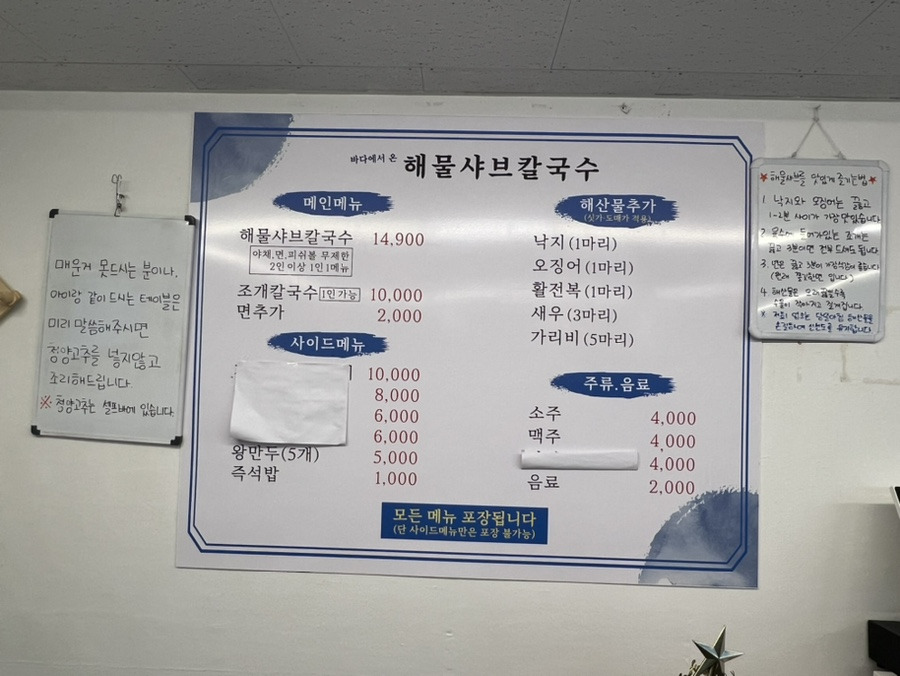 바다에서 온 해물샤브칼국수
메인메뉴
해물샤브칼국수 14,900
야채.면.피쉬볼 무제한
2인이상 1인1메뉴
조개칼국수 1인가능 10,000
면추가 2,000
사이드메뉴
10,000
8,000
6,000
6,000
왕만두(5개) 5,000
즉석밥 1,000
해산물추가
(싯가·도매가 적용)
낙지(1마리)
오징어(1마리)
활전복(1마리)
새우(3마리)
가리비(5마리)
주류.음료
소주 4,000
맥주 4,000
4,000
음료 2,000
모든 메뉴 포장됩니다
(단 사이드메뉴만은 포장 불가능)
매운거 못드시는 분이나,
아이랑 같이 드시는 테이블은
미리 말씀해주시면
청양고추를 넣지않고
조리해드립니다.
※ 청양고추는 셀프바에 있습니다.
★해물샤브를 맛있게 즐기는법★
1. 낙지와 오징어는 끓고
1~2분 사이가 가장맛있습니다
2. 육수에 들어가있는 조개는
끓고 3분이면 전부 드셔도 됩니다.
3. 면은 끓고 5분이 가장적당히 좋습니다
4. 해산물은 오래끓일수록